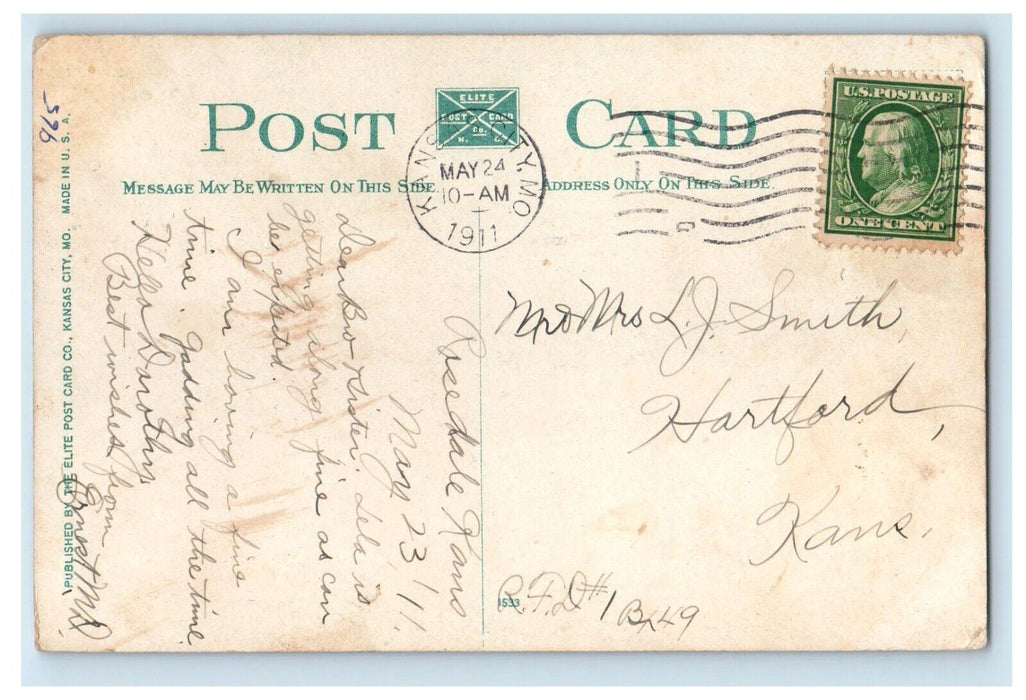 965
POST CARD
ELITE
POST CARD
Co.
K. C.
U.S. POSTAGE
ONE CENT
KANSAS CITY, MO.
MAY 24
10-AM
1911
MESSAGE MAY BE WRITTEN ON THIS SIDE.
ADDRESS ONLY ON THIS SIDE.
Rosedale Kans
May 23/11.
Dear Bro & Sister. Lela is
getting along fine as can
be expected.
I am having a fine
time. Gadding all the time.
Hello Dorothy
Best wishes from
Ernest
Mr & Mrs L.J. Smith,
Hartford,
Kans.
R.F.D #1 Bx 49
1533
PUBLISHED BY THE ELITE POST CARD CO., KANSAS CITY, MO. MADE IN U. S. A.